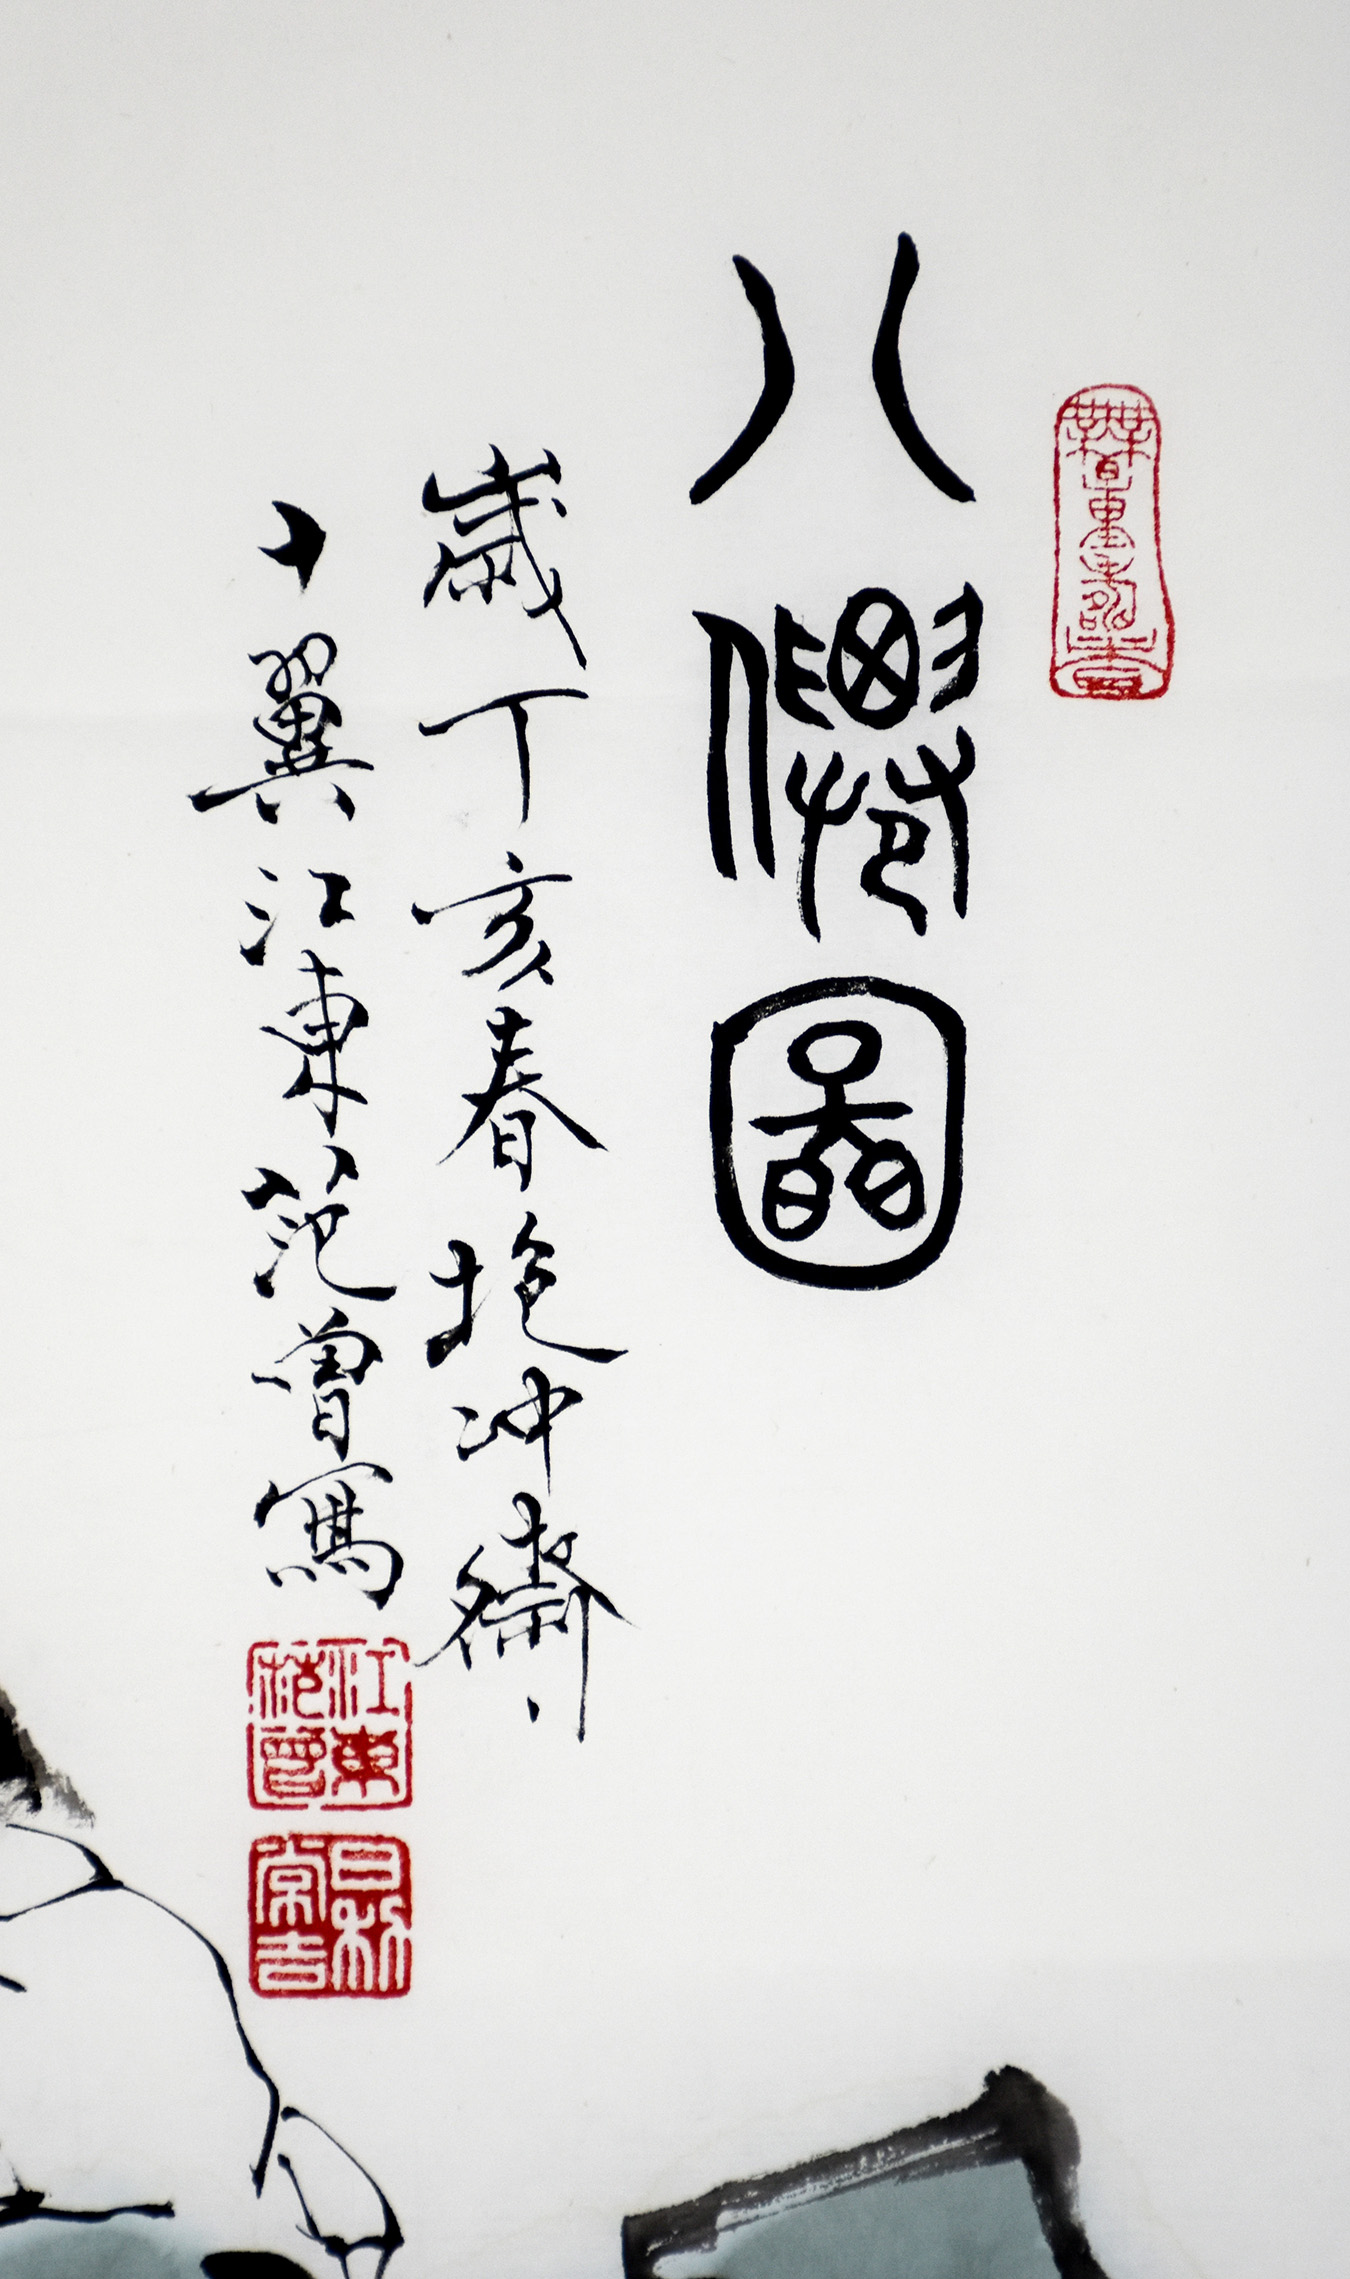 八僊圖
歲丁亥春抱冲齋
十翼江東范曾寫
江東范曾
日利常吉